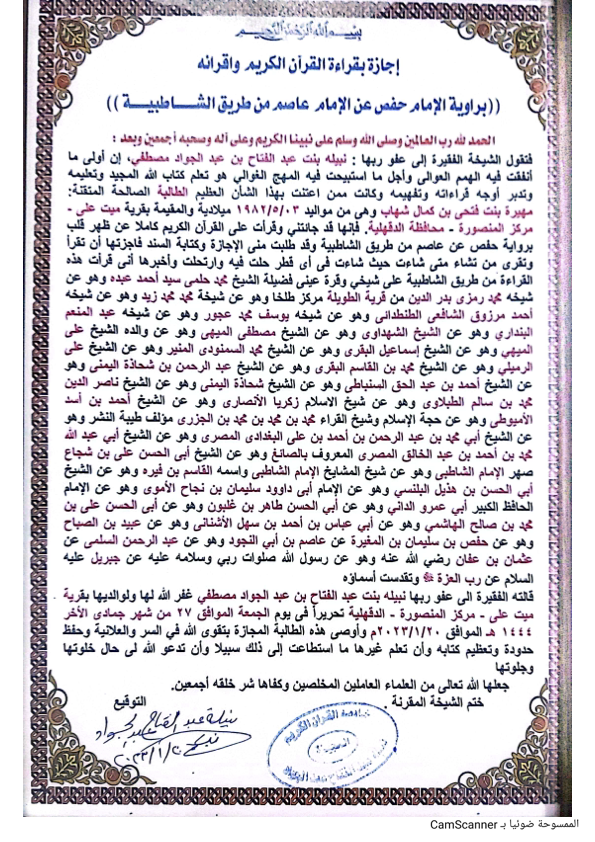 بسم الله الرحمن الرحيم
إجازة بقراءة القرآن الكريم واقرائه
((براوية الإمام حفص عن الإمام عاصم من طريق الشاطبية))
الحمد لله رب العالمين وصلى الله وسلم على نبينا الكريم وعلى آله وصحبه أجمعين وبعد :
فتقول الشيخة الفقيرة إلى عفو ربها : نبيله بنت عبد الفتاح بن عبد الجواد مصطفي، إن أولى ما
أنفقت فيه الهمم العوالى وأجل ما استبيحت فيه المهج الغوالي هو تعلم كتاب الله المجيد وتعليمه
وتدبر أوجه قراءاته وتفهيمه وكانت ممن اعتنت بهذا الشأن العظيم الطالبة الصالحة المتقنة:
مهيرة بنت فتحى بن كمال شهاب وهي من مواليد ١٩٨٢/٥/٠٣ ميلادية والمقيمة بقرية ميت على -
مركز المنصورة - محافظة الدقهلية. فإنها قد جائتني وقرأت على القرآن الكريم كاملا عن ظهر قلب
برواية حفص عن عاصم من طريق الشاطبية وقد طلبت منى الإجازة وكتابة السند فاجزتها أن تقرأ
وتقرى من تشاء متى شاءت حيث شاءت فى أى قطر حلت فيه وارتحلت وأخبرها أنى قرأت هذه
القراءة من طريق الشاطبية على شيخي وقرة عينى فضيلة الشيخ محمد حلمى سيد أحمد عبده وهو عن
شيخه محمد رمزى بدر الدين من قرية الطويلة مركز طلخا وهو عن شيخة محمد محمد زيد وهو عن شيخه
أحمد مرزوق الشافعى الطنطدائى وهو عن شيخه يوسف محمد عجور وهو عن شيخه عبد المنعم
البنداري وهو عن الشيخ الشهداوى وهو عن الشيخ مصطفى الميهى وهو عن والده الشيخ على
الميهي وهو عن الشيخ إسماعيل البقرى وهو عن الشيخ محمد السمنودى المنير وهو عن الشيخ على
الرميلي وهو عن الشيخ محمد بن القاسم البقرى وهو عن الشيخ عبد الرحمن بن شحاذة اليمنى وهو
عن الشيخ أحمد بن عبد الحق السنباطى وهو عن الشيخ شحاذة اليمنى وهو عن الشيخ ناصر الدين
محمد بن سالم الطبلاوى وهو عن شيخ الاسلام زكريا الأنصارى وهو عن الشيخ أحمد بن أسد
الأميوطي وهو عن حجة الإسلام وشيخ القراء محمد بن محمد بن محمد بن الجزرى مؤلف طيبة النشر وهو
عن الشيخ أبي محمد بن عبد الرحمن بن أحمد بن على البغدادى المصرى وهو عن الشيخ أبي عبد الله
محمد بن أحمد بن عبد الخالق المصرى المعروف بالصائغ وهو عن الشيخ أبى الحسن على بن شجاع
صهر الإمام الشاطبي وهو عن شيخ المشايخ الإمام الشاطبي واسمه القاسم بن فيره وهو عن الشيخ
أبي الحسن بن هذيل البلنسي وهو عن الإمام أبى داوود سليمان بن نجاح الأموى وهو عن الإمام
الحافظ الكبير أبي عمرو الدانى وهو عن أبي الحسن طاهر بن غلبون وهو عن أبى الحسن على بن
محمد بن صالح الهاشمي وهو عن أبي عباس بن أحمد بن سهل الأشنانى وهو عن عبيد بن الصباح
وهو عن حفص بن سليمان بن المغيرة عن عاصم بن أبي النجود وهو عن عبد الرحمن السلمى عن
عثمان بن عفان رضي الله عنه وهو عن رسول الله صلوات ربي وسلامه عليه عن جبريل عليه
السلام عن رب العزة ﷺ وتقدست أسماؤه
قالته الفقيرة الى عفو ربها نبيله بنت عبد الفتاح بن عبد الجواد مصطفي غفر الله لها ولوالديها بقرية
ميت على - مركز المنصورة - الدقهلية تحريراً فى يوم الجمعة الموافق ٢٧ من شهر جمادى الأخر
١٤٤٤ هـ الموافق ٢٠٢٣/١/٢٠م وأوصى هذه الطالبة المجازة بتقوى الله في السر والعلانية وحفظ
حدودة وتعظيم كتابه وأن تعلم غيرها ما استطاعت إلى ذلك سبيلا وأن تدعو الله لى حال خلوتها
وجلوتها
جعلها الله تعالى من العلماء العاملين المخلصين وكفاها شر خلقه أجمعين.
ختم الشيخة المقرنة . التوقيع
نبيلة عبد الفتاح عبد الجواد
٢٠٢٣/١/٢٠
خادمة القرآن الكريم
الممسوحة ضوئيا بـ CamScanner